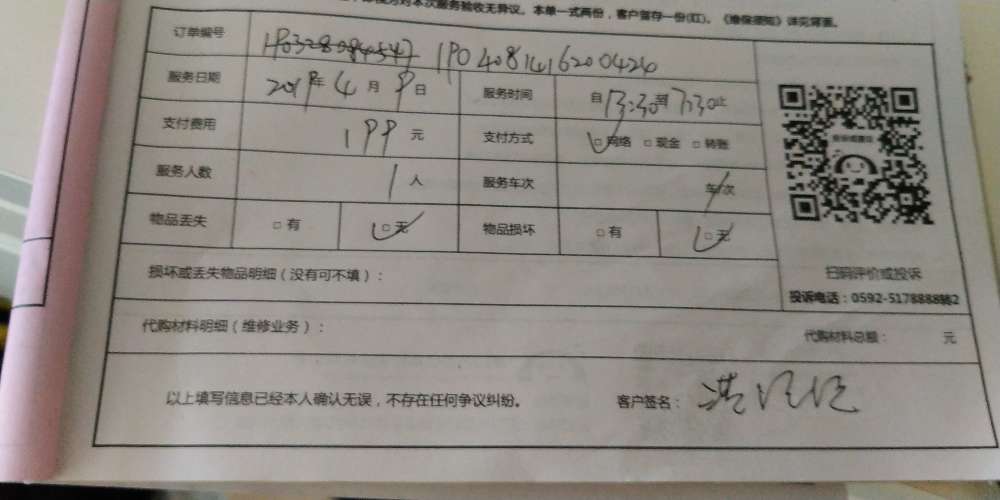 对本次服务验收无异议。本单一式两份，客户留存一份(红)。《维保须知》详见背面。
订单编号 1P04081416200426
服务日期 2019年4月9日 服务时间 自13:30到7:30止
支付费用 199元 支付方式 □网络 □现金 □转账
服务人数 1人 服务车次 车/次
物品丢失 □有 □无 物品损坏 □有 □无
损坏或丢失物品明细（没有可不填）：
扫码评价或投诉
投诉电话：0592-5178888转2
代购材料明细（维修业务）： 代购材料总额： 元
以上填写信息已经本人确认无误，不存在任何争议纠纷。 客户签名：